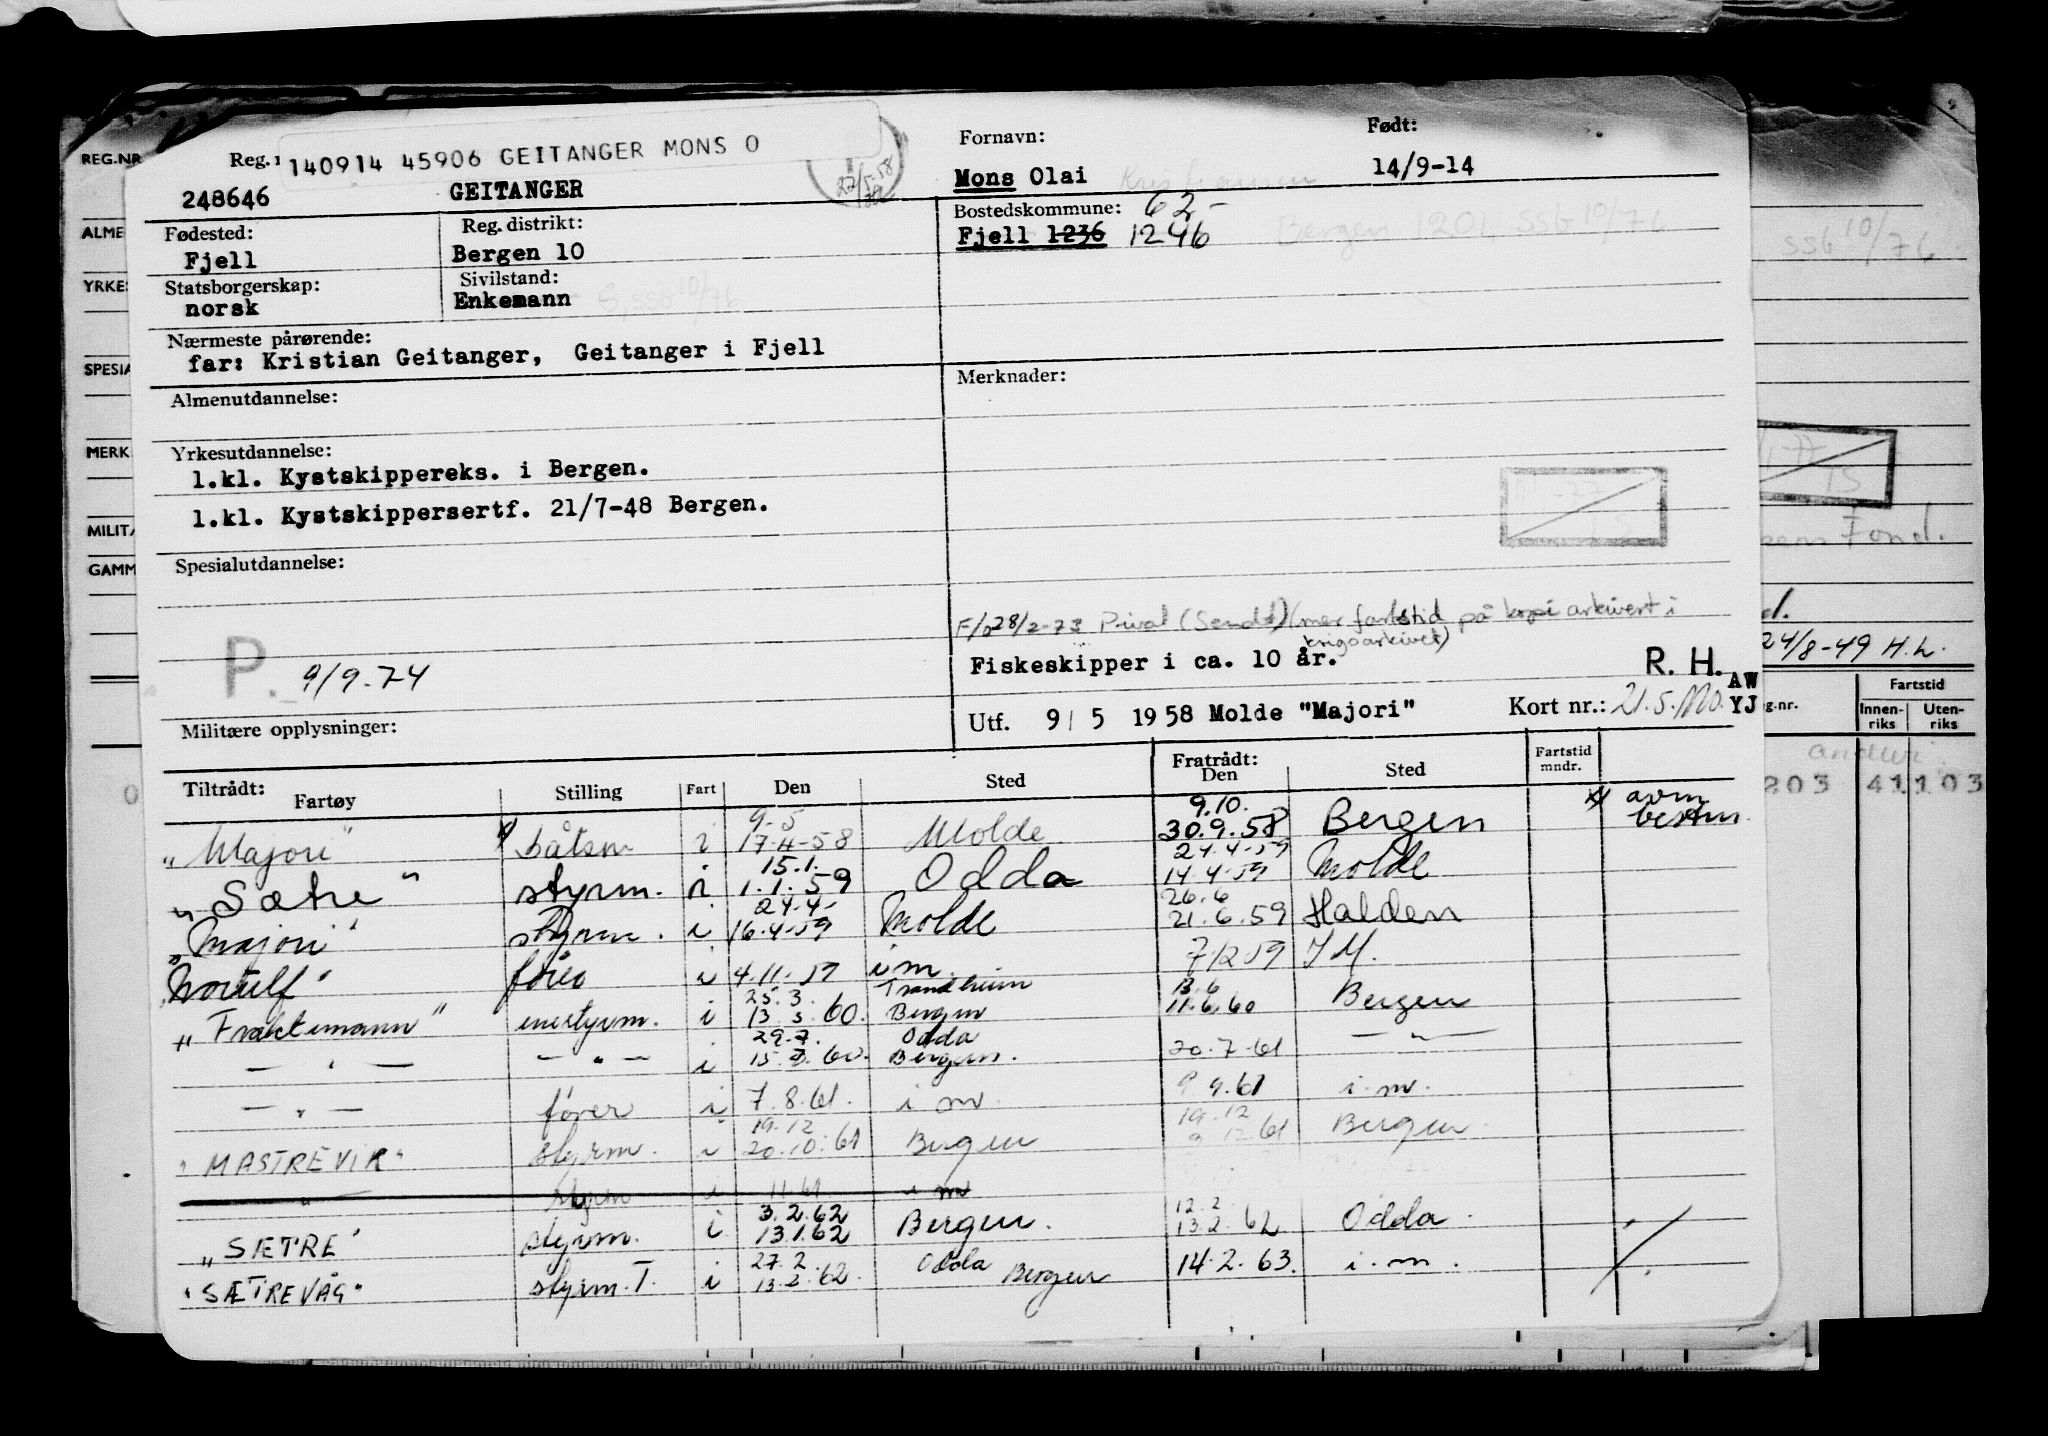 REG.NR
Reg.
140914 45906 GEITANGER MONS O
22/5-58
Fornavn:
Født:
248646
GEITANGER
Mons Olai
14/9-14
ALME
Fødested:
Reg. distrikt:
Bostedskommune: 62-
Fjell
Bergen 10
Fjell 1236 1246
Bergen 1201 SSG 10/76
SSG 10/76
YRKES
Statsborgerskap:
Sivilstand:
norsk
Enkemann
G, SSG 10/76
Nærmeste pårørende:
far: Kristian Geitanger, Geitanger i Fjell
SPESIA
Almenutdannelse:
Merknader:
MERK
Yrkesutdannelse:
1.kl. Kystskippereks. i Bergen.
1.kl. Kystskippersertf. 21/7-48 Bergen.
MILITÆ
GAMM
Fond.
Spesialutdannelse:
F/o 28/2-73 Privat (Sendt) (mer fartstid på kopi arkivert i
krigsarkivet)
P. 9/9.74
Fiskeskipper i ca. 10 år.
R. H.
AW
24/8-49 H.L.
Militære opplysninger:
Utf. 9/5 1958 Molde "Majori"
Kort nr.: 21.5.
YJ
g.nr.
Fartstid
Innen-
riks
Uten-
riks
203 41103
Tiltrådt:
Fartøy
Stilling
Fart
Den
Sted
Fratrådt:
Den
Sted
Fartstid
mndr.
9-5
9.10.
"Majori" båtsm i 17-4-58 Molde 30.9.58 Bergen
15.1.
24.4-59
"Sætre" styrm. i 1.1.59 Odda 14.4-59 Molde
24.4-
26.6
"Majori" styrm. i 16.4-59 Molde 21.6.59 Halden
i 4.11.59 i m. 7/12 59 I M.
25.3. Trondheim
13.6
"Fraktemann" enestyrm. i 13.3.60. Bergen 11.6.60 Bergen
29.7. Odda
— " — — " — i 15.7.60. Bergen. 20.7-61 — " —
— " — fører i 7.8.61. i m. 9 9.61 i.m.
19.12
19.12
"MASTREVIK" styrm. i 20.10.61 Bergen 9.12.61 Bergen.
" styrm i 11.61 i m
3.2.62
12.2.
"SÆTRE" styrm. i 13.1.62 Bergen. 13.2.62 Odda.
27.2. Odda
"SÆTREVÅG" styrm. T. i 13.2.62. Bergen 14.2.63. i.m.